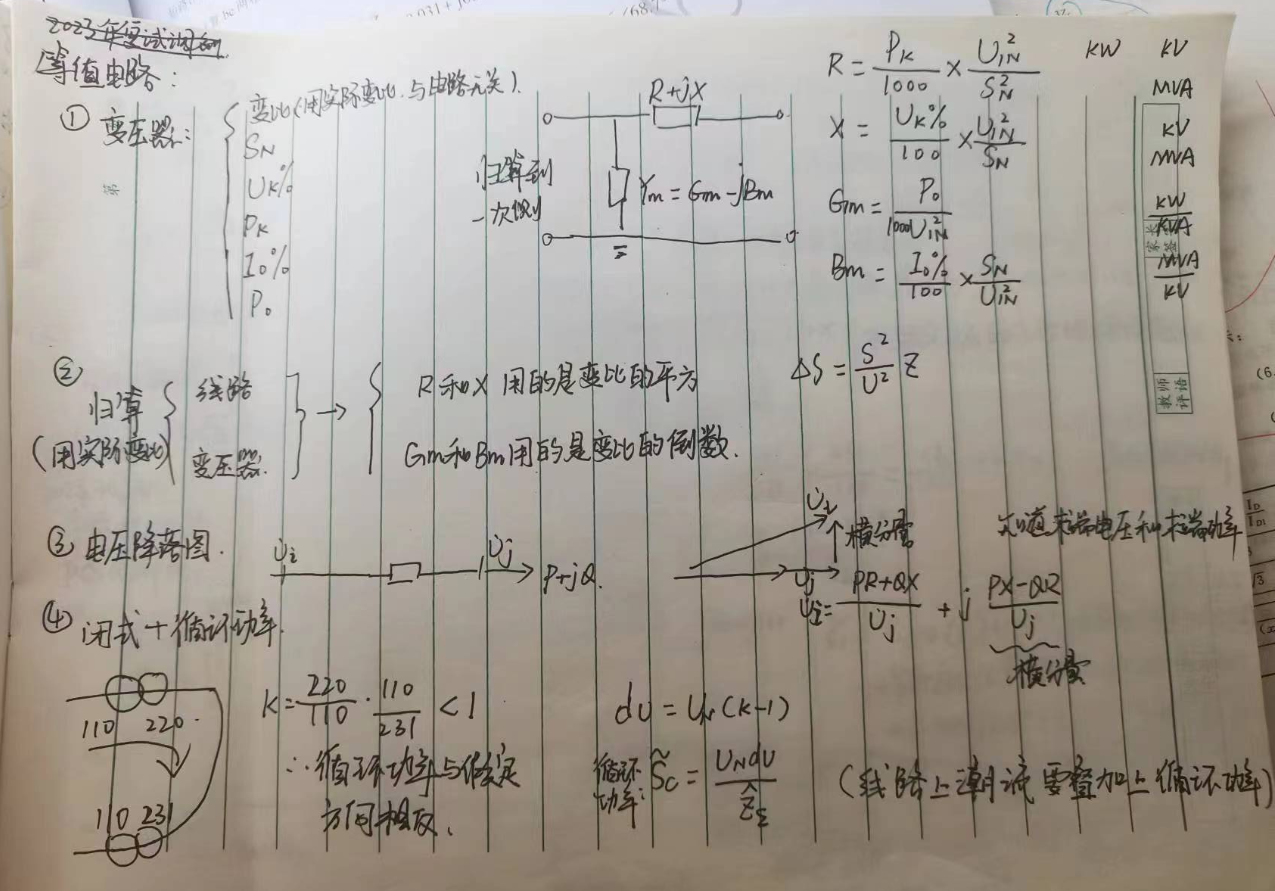 2023年复试调剂
等值电路:
① 变压器: 变比(用实际变比,与电路无关).
SN
UK%
PK
I0%
P0
归算到
一次侧
R+jX
Ym=Gm-jBm
R=PK/1000×U1N²/SN² KW KV MVA
X=UK%/100×U1N²/SN KV MVA
Gm=P0/1000U1N² KW/KVA
Bm=I0%/100×SN/U1N² MVA/KV
② 归算 线路 → R和X用的是变比的平方
(用实际变比) 变压器. Gm和Bm用的是变比的倒数.
ΔS=S²/U² Z
教师评语
③ 电压降落图. U̇i U̇j P+jQ.
U̇i 横分量 U̇j
知道末端电压和末端功率
U̇i=PR+QX/Uj + j PX-QR/Uj
横分量
④ 闭式+循环功率.
110 220
110 231
K=220/110·110/231<1
∴循环功率与假定
方向相反.
dU=UN(K-1)
循环功率: S̃c=UNdU/ẐΣ (线路上潮流需叠加上循环功率)